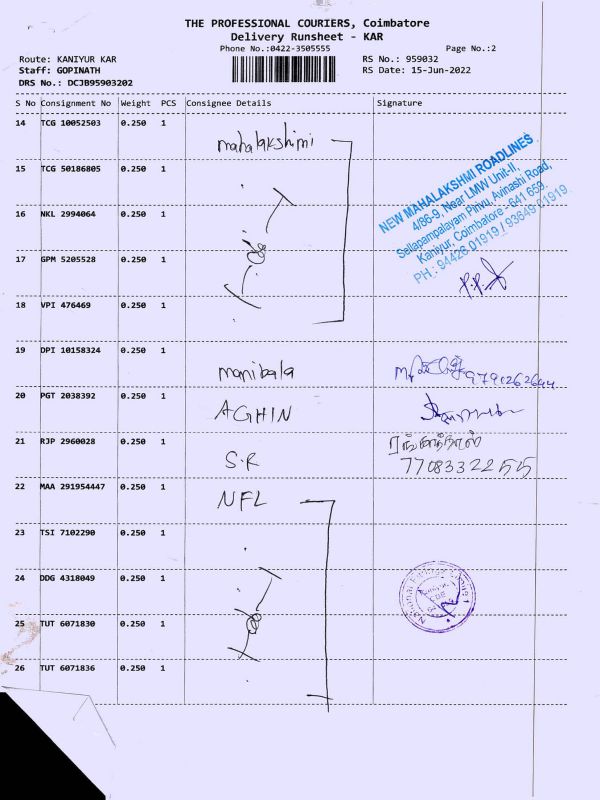 THE PROFESSIONAL COURIERS, Coimbatore
Delivery Runsheet - KAR
Phone No.:0422-3505555
Page No.:2
Route: KANIYUR KAR
RS No.: 959032
Staff: GOPINATH
RS Date: 15-Jun-2022
DRS No.: DCJB95903202
S No Consignment No Weight PCS Consignee Details Signature
14 TCG 10052503 0.250 1 mahalakshimi
NEW MAHALAKSHMI ROADLINES
4/86-9, Near LMW Unit-II,
Sellapampalayam Pirivu, Avinashi Road,
Kaniyur, Coimbatore - 641 659.
PH : 94426 01919 / 93649 01919
15 TCG 50186805 0.250 1
16 NKL 2994064 0.250 1
17 GPM 5205528 0.250 1
18 VPI 476469 0.250 1
19 DPI 10158324 0.250 1 manibala
20 PGT 2038392 0.250 1 AGHIN
21 RJP 2960028 0.250 1 S.R
7708332255
22 MAA 291954447 0.250 1 NFL
23 TSI 7102290 0.250 1
24 DDG 4318049 0.250 1
25 TUT 6071830 0.250 1
26 TUT 6071836 0.250 1